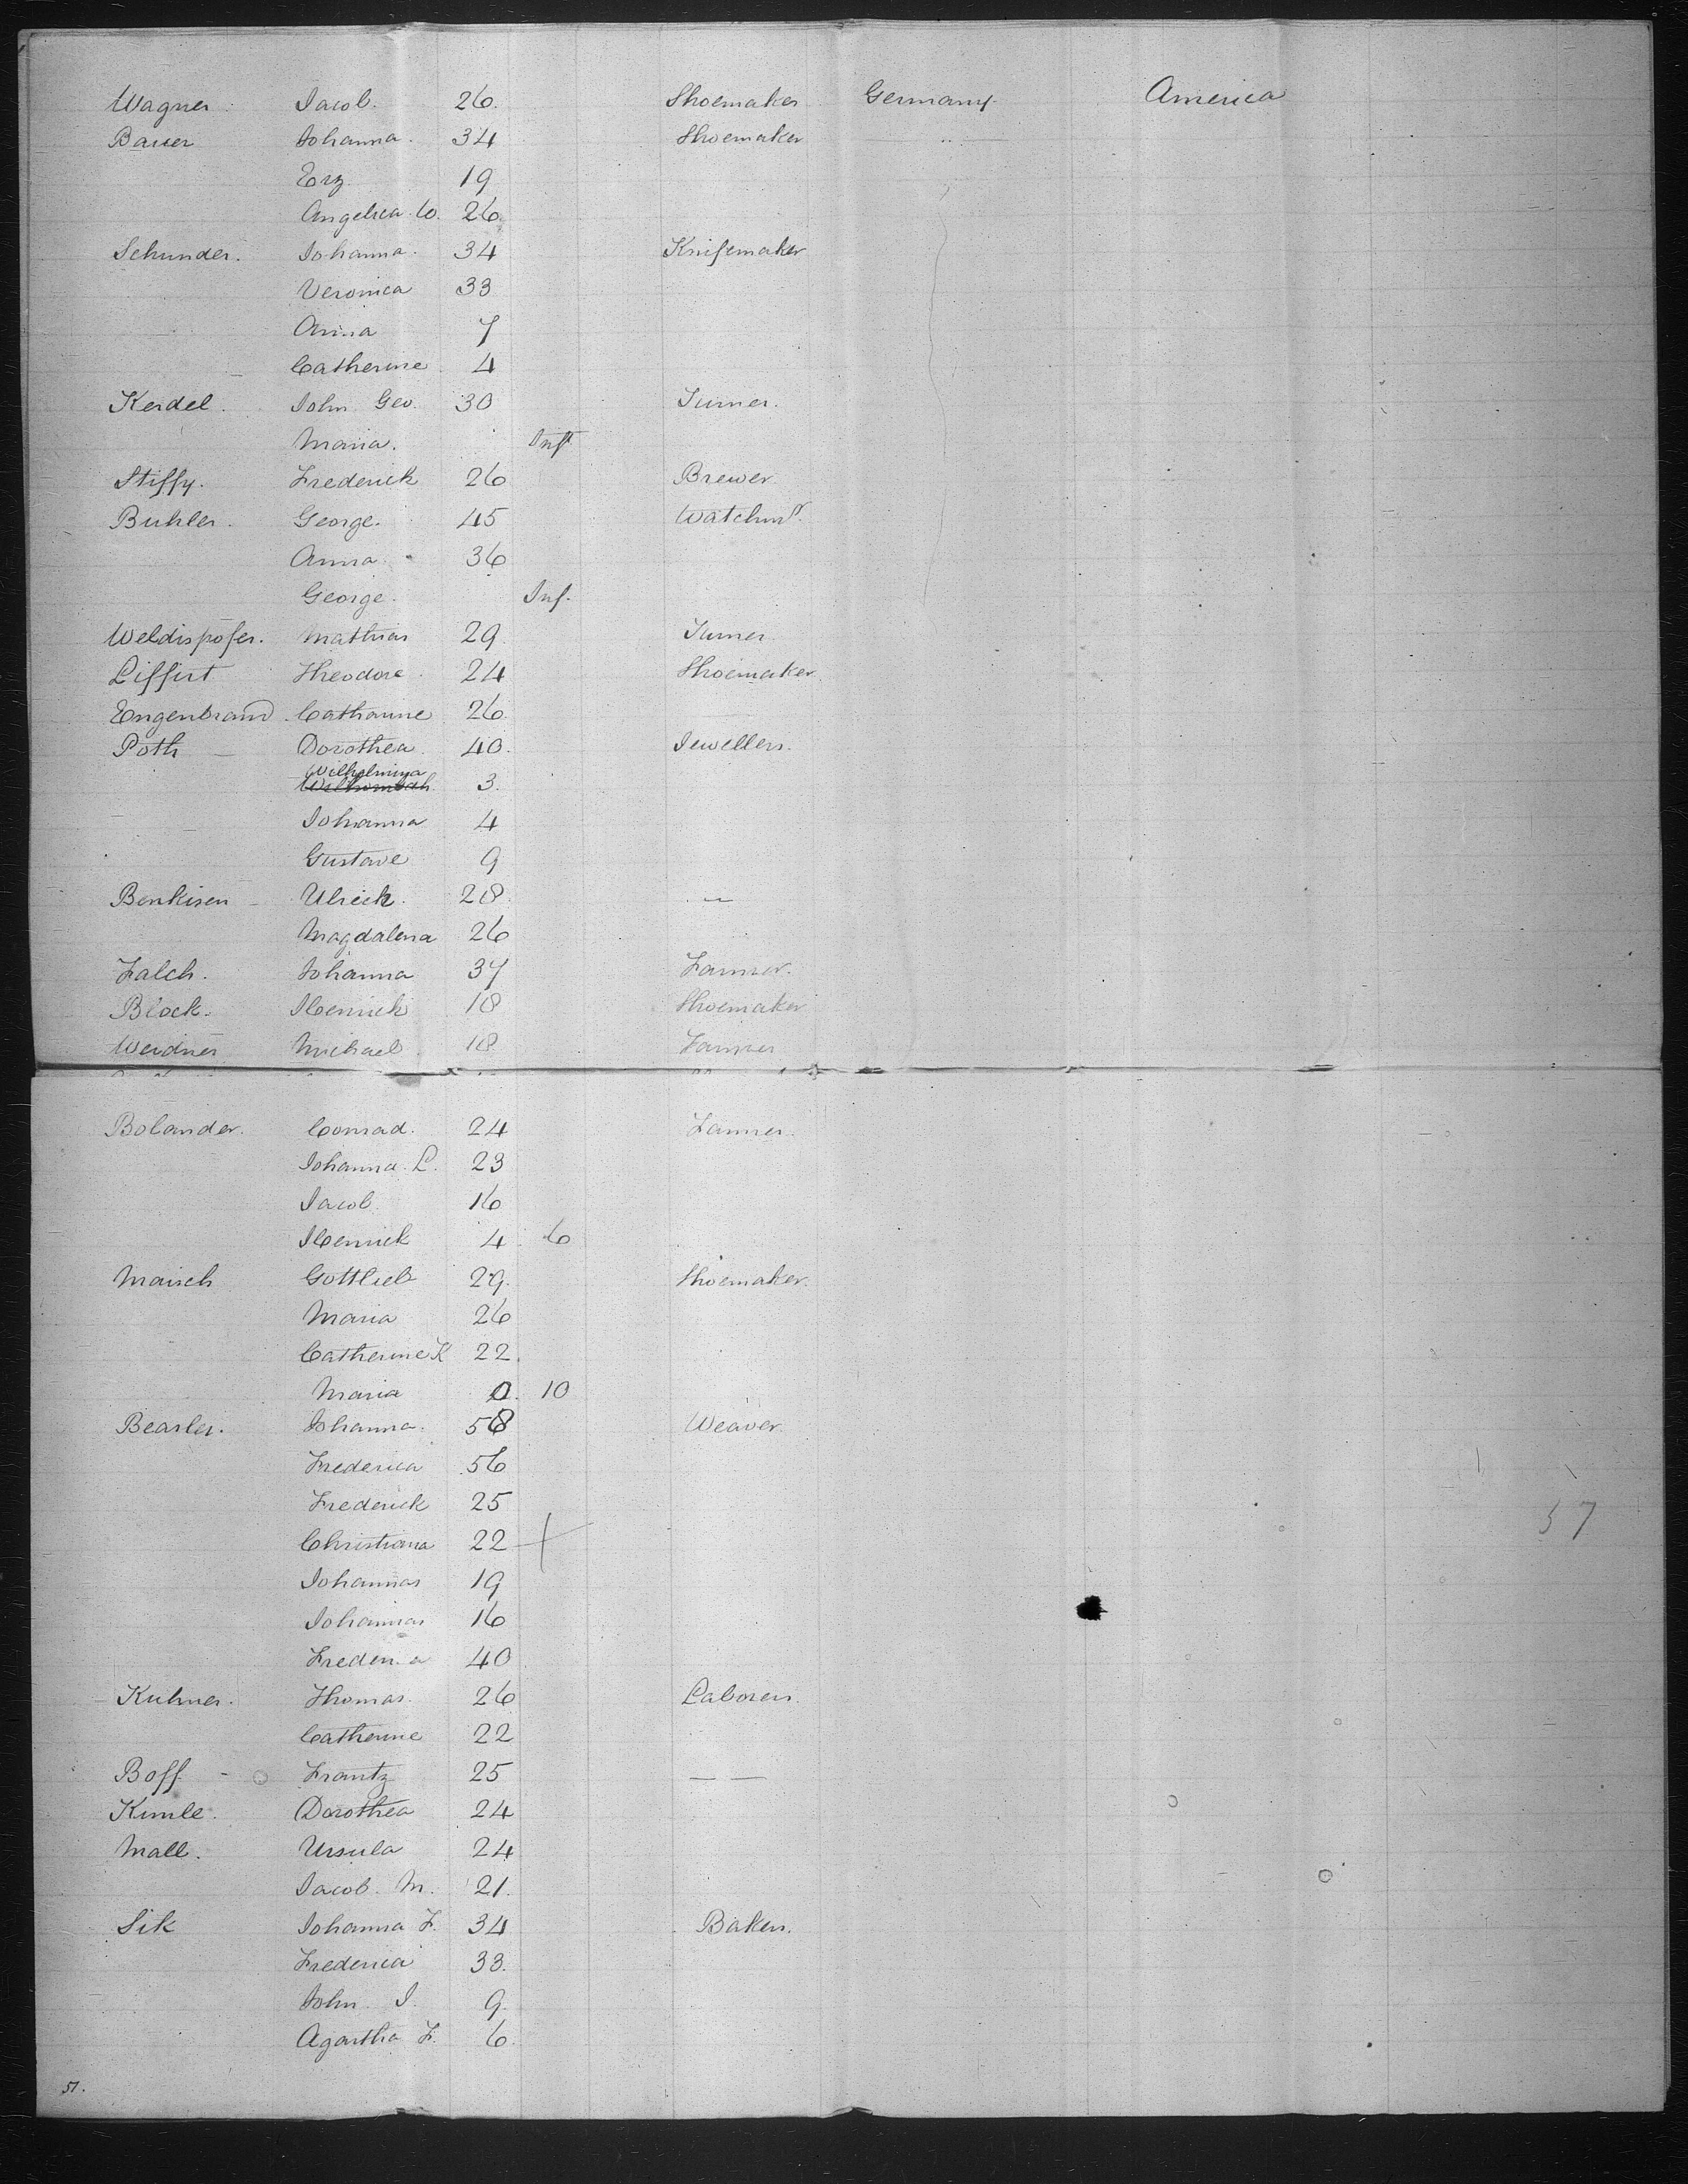 Wagner Jacob. 26. Shoemaker Germany. America
Bauer Johanna. 34 Shoemaker "
Erz. 19
Angelica C. 26.
Schunder. Johanna. 34 Knifemaker
Veronica 33
Anna 7
Catherine 4
Keidel. John Geo. 30 Turner.
Maria. Inft
Stiffy. Frederick 26 Brewer
Buhler. George. 45 Watchmr.
Anna 36
George. Inf.
Weldispofer. Mathias 29 Turner
Liffert Theodore 24 Shoemaker
Engenbrand Catharine 26
Poth - Dorothea 40. Jewellers.
Wilhelmina
3.
Johanna 4
Gustave 9
Benkisen - Ulrich. 28. "
Magdalena 26
Falch. Johanna 37 Farmer.
Block. Henrick 18 Shoemaker
Weidner Michael 18 Farmer
Bolander. Conrad. 24 Farmer.
Johanna L. 23
Jacob. 16
Henrick 4 6
Maisch Gottlieb 29. Shoemaker.
Maria 26
Catherine K 22.
Maria 0. 10
Bearler. Johanna. 58 Weaver
Frederica 56
Frederick 25
Christiana 22
Johannas 19
57
Johannas 16
Frederica 40
Kuhner. Thomas. 26 Laborers.
Catherine 22
Boff - Frantz 25 — —
Kimle. Dorothea 24
Mall. Ursula 24
Jacob. M. 21.
Sik Johanna F. 34 Bakers.
Frederica 33.
John J. 9.
Agartha F. 6
51.